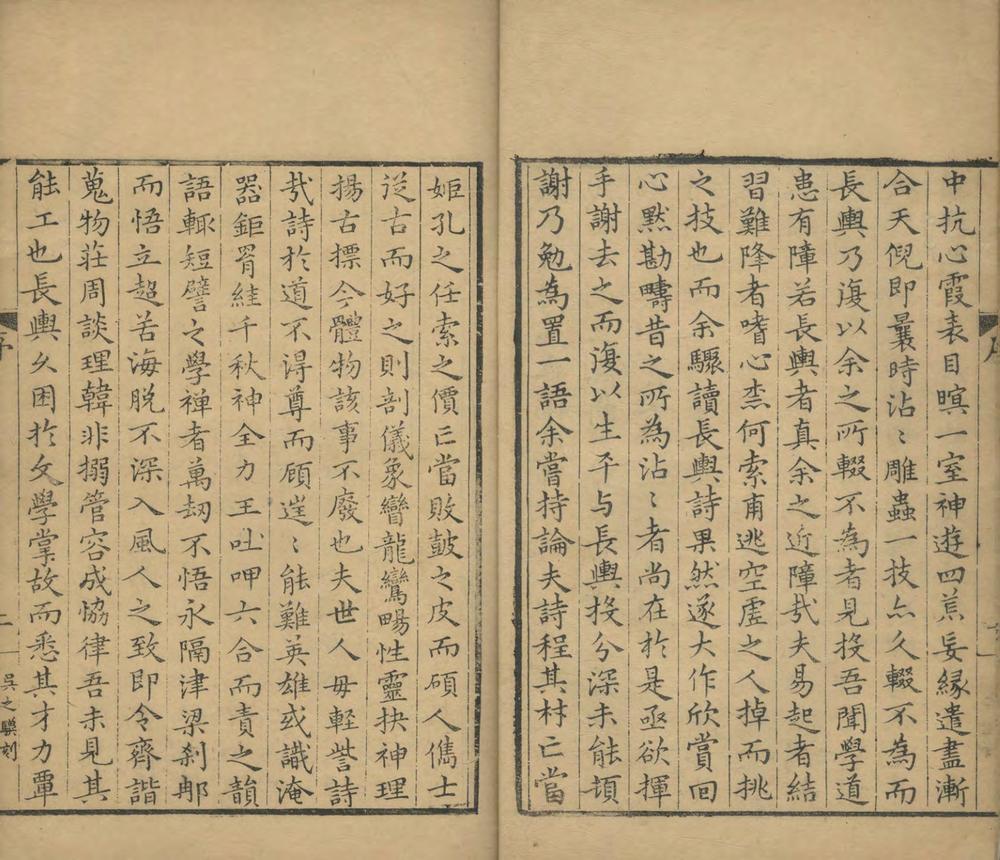 中抗心霞表目暝一室神遊四荒妄緣遣盡漸
合天倪即曩時沾〻雕蟲一技亦久輟不為而
長輿乃復以余之所輟不為者見投吾聞學道
患有障若長輿者真余之近障㢤夫易起者結
習難降者嗜心柰何索甫逃空虛之人掉而挑
之技也而余驟讀長輿詩果然遂大作欣賞回
心默勘疇昔之所為沾〻者尚在於是亟欲揮
手謝去之而復以生平与長輿投分深未能頓
謝乃勉為置一語余嘗持論夫詩程其材亡當
姬孔之任索之價亡當敗皷之皮而碩人儁士
従古而好之則剖儀象彎龍鸞暢性靈抉神理
揚古摽今體物該事不廢也夫世人毋輕訾詩
㢤詩於道不得尊而顧逞〻能難英雄或識淹
器鉅胥絓千秋神全力王吐呷六合而責之韻
語輙短譬之學禅者萬刼不悟永隔津梁剎那
而悟立超苦海脫不深入風人之致即令齊諧
蒐物莊周談理韓非搦管容成恊律吾未見其
能工也長輿久困於文學掌故而悉其才力覃
序
二
吳之驥刻